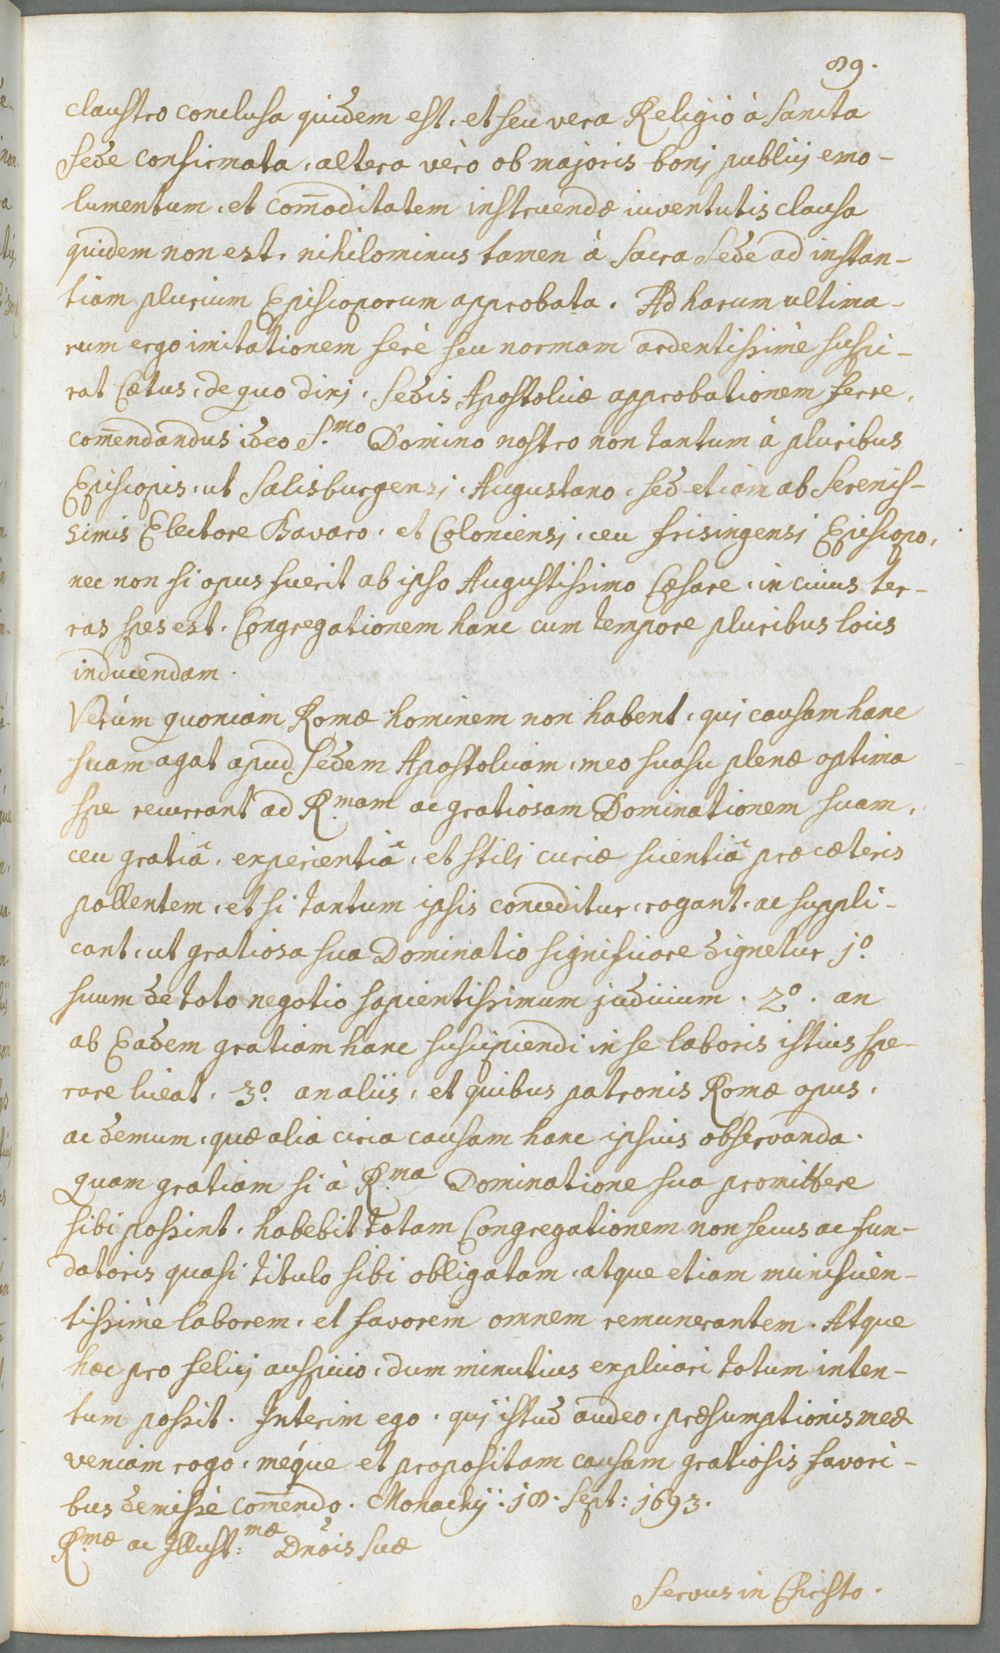 89.
claustro conclusa quidem est, et seu vera Religio à Sancta
Sede confirmata, altera verò ob majoris bonj publicj emo-
lumentum, et com̄oditatem instruendæ iuventutis clausa
quidem non est, nihilominus tamen à Sacra Sede ad instan-
tiam plurium Episcoporum approbata. Ad harum ultima-
rum ergo imitationem ferè seu normam ardentissimè suspi-
rat Cœtus, de quo dixj, Sedis Apostolicæ approbationem ferre,
com̄endandus ideo S.mo Domino nostro non tantum à pluribus
Episcopis, ut Salisburgensj, Augustano, sed etiam ab Serenis-
simis Electore Bavaro, et Coloniensj, ceu frisingensj Episcopo,
nec non si opus fuerit ab ipso Augustissimo Cæsare, in cuius ter-
ras spes est, Congregationem hanc cum tempore pluribus locis
inducendam.
Verùm quoniam Romæ hominem non habent, quj causam hanc
suam agat apud Sedem Apostolicam, meo suasu plenæ optima
spe recurrant ad R.mam ac gratiosam Dominationem suam,
ceu gratiâ, experientiâ, et stilj curiæ scientiâ præ cæteris
pollentem, et si tantum ipsis conceditur, rogant, ac suppli-
cant, ut gratiosa sua Dominatio significare dignetur 1º.
suum de toto negotio sapientissimum judicium. 2º. an
ab Eadem gratiam hanc suscipiendi in se laboris istius spe-
rare liceat. 3º. an aliis, et quibus patronis Romæ opus,
ac demum, quæ alia circa causam hanc ipsius observanda.
Quam gratiam si à R.ma Dominatione sua promittere
sibi possint, habebit totam Congregationem non secus ac fun-
datoris quasi titulo sibi obligatam, atque etiam munificen-
tissimè laborem, et favorem omnem remunerantem. Atque
hæc pro felicj auspicio, dum minutius explicari totum inten-
tum possit. Interim ego, quj istud audeo, præsumptionis meæ
veniam rogo, méque et propositam causam gratiosis favori-
bus demissè com̄endo. Monachij: 18. Sept: 1693.
R.mæ ac Illust:mæ Dn̄õis Suæ
Servus in Christo.